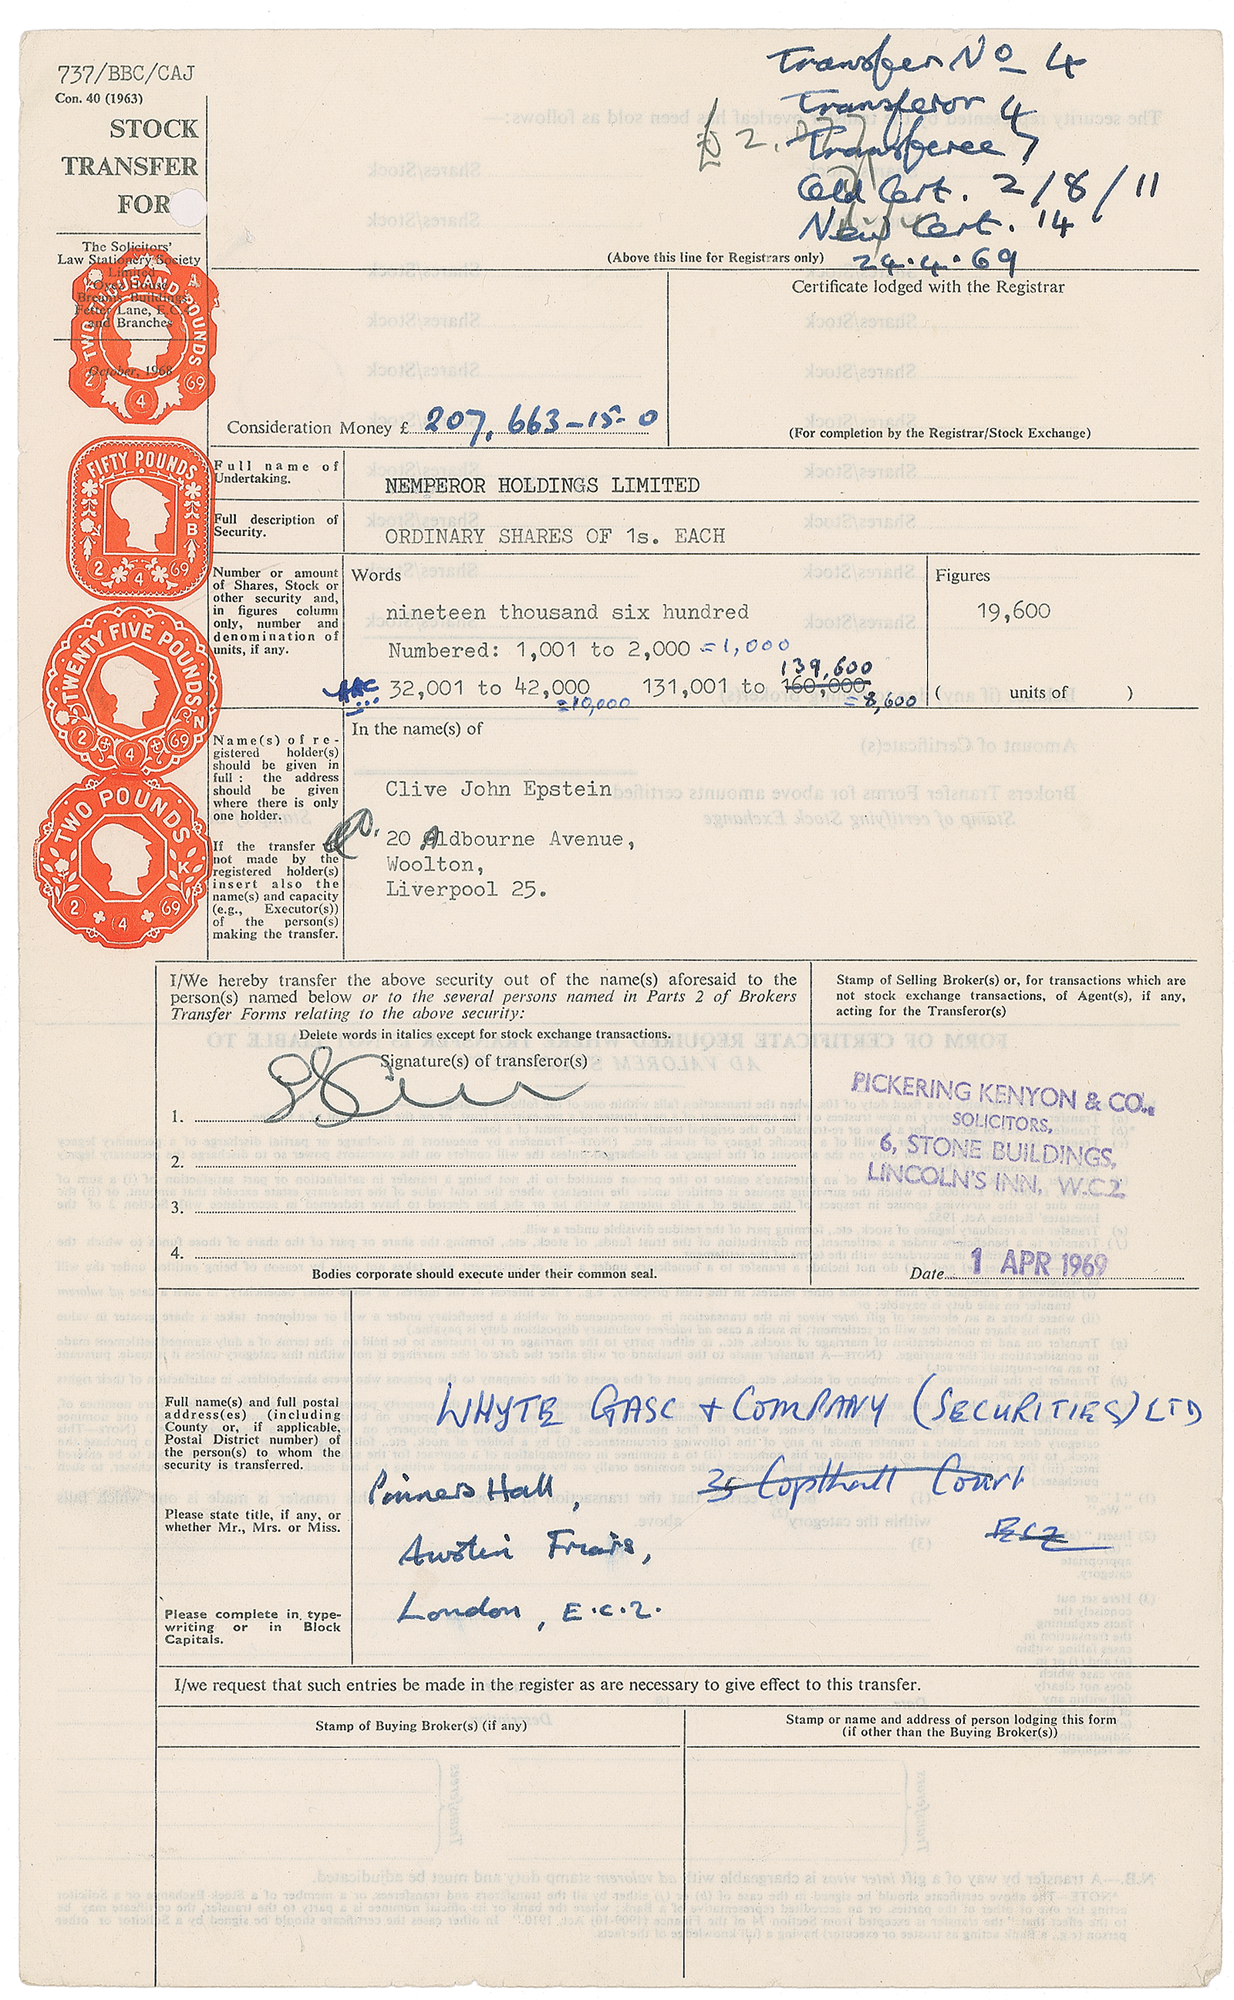 737/BBC/CAJ
Con. 40 (1963)
STOCK
TRANSFER
FOR
The Solicitors'
Law Stationery Society
Limited
Oyez House
Breams Buildings
Fetter Lane, E.C.
and Branches
October, 1968
Transfer No 4
Transferor 4
Transferee 7
Old Cert. 2/8/11
New Cert. 14
24.4.69
(Above this line for Registrars only)
Certificate lodged with the Registrar
(For completion by the Registrar/Stock Exchange)
Consideration Money £ 207,663-15-0
TWO THOUSAND POUNDS
2 4 69
FIFTY POUNDS
B
2 4 69
TWENTY FIVE POUNDS
N
2 4 69
TWO POUNDS
K
2 4 69
Full name of
Undertaking.
NEMPEROR HOLDINGS LIMITED
Full description of
Security.
ORDINARY SHARES OF 1s. EACH
Number or amount
of Shares, Stock or
other security and,
in figures column
only, number and
denomination of
units, if any.
Words
nineteen thousand six hundred
Numbered: 1,001 to 2,000 =1,000
139,600
32,001 to 42,000 131,001 to 160,000
=10,000 =8,600
Figures
19,600
( units of )
Name(s) of re-
gistered holder(s)
should be given in
full: the address
should be given
where there is only
one holder.
If the transfer is
not made by the
registered holder(s)
insert also the
name(s) and capacity
(e.g., Executor(s))
of the person(s)
making the transfer.
In the name(s) of
Clive John Epstein
20 Aldbourne Avenue,
Woolton,
Liverpool 25.
I/We hereby transfer the above security out of the name(s) aforesaid to the
person(s) named below or to the several persons named in Parts 2 of Brokers
Transfer Forms relating to the above security:
Delete words in italics except for stock exchange transactions.
Signature(s) of transferor(s)
1.
2.
3.
4.
Bodies corporate should execute under their common seal.
Stamp of Selling Broker(s) or, for transactions which are
not stock exchange transactions, of Agent(s), if any,
acting for the Transferor(s)
PICKERING KENYON & CO.,
SOLICITORS,
6, STONE BUILDINGS,
LINCOLN'S INN, W.C.2
Date 1 APR 1969
Full name(s) and full postal
address(es) (including
County or, if applicable,
Postal District number) of
the person(s) to whom the
security is transferred.
Please state title, if any, or
whether Mr., Mrs. or Miss.
Please complete in type-
writing or in Block
Capitals.
WHYTE GASC & COMPANY (SECURITIES) LTD
35 Copthall Court
EC2
Pinners Hall,
Austin Friars,
London, E.C.2.
I/we request that such entries be made in the register as are necessary to give effect to this transfer.
Stamp of Buying Broker(s) (if any)
Stamp or name and address of person lodging this form
(if other than the Buying Broker(s))